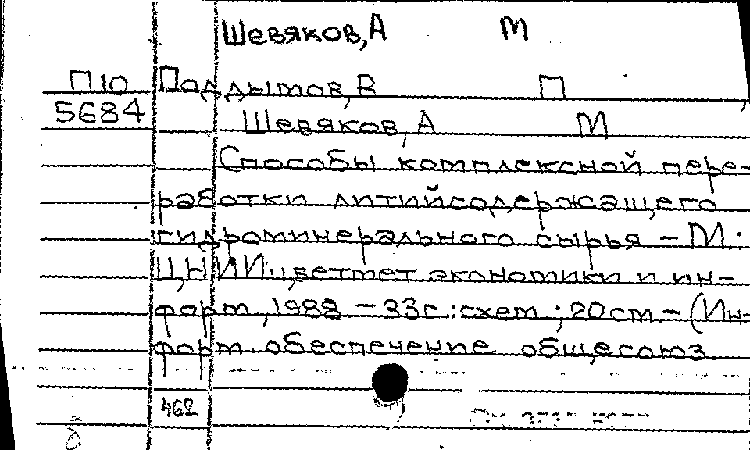 Шевяков, А М
П10 Поддымов, В П
5684 Шевяков, А М
Способы комплексной пере-
работки литийсодержащего
гидроминерального сырья - М.:
ЦНИИцветмет экономики и ин-
форм, 1988 - 33с.:схем; 20см - (Ин-
форм. обеспечение общесоюз.
462